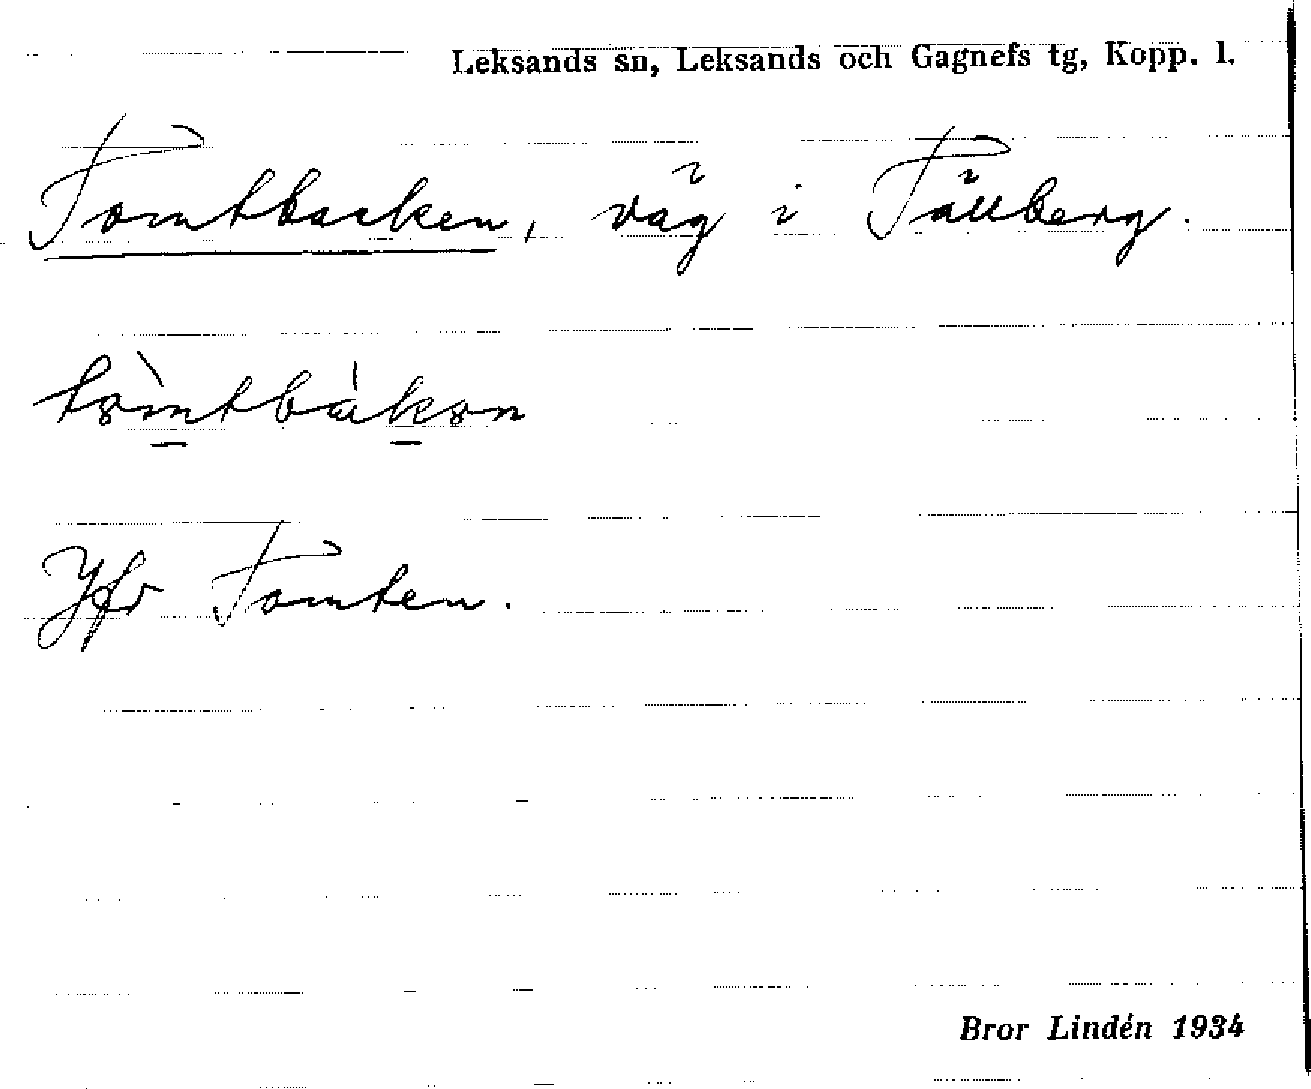 Leksands sn, Leksands och Gagnefs tg, Kopp. l.
Tomtbacken, väg i Tällberg.
Jfr Tomten.
Bror Lindén 1934